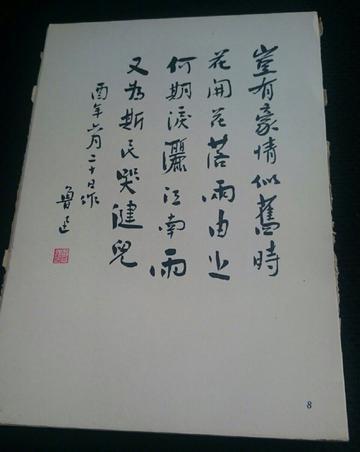 豈有豪情似舊時
花開花落兩由之
何期淚灑江南雨
又為斯民哭健兒
酉年六月二十日作
魯迅
8